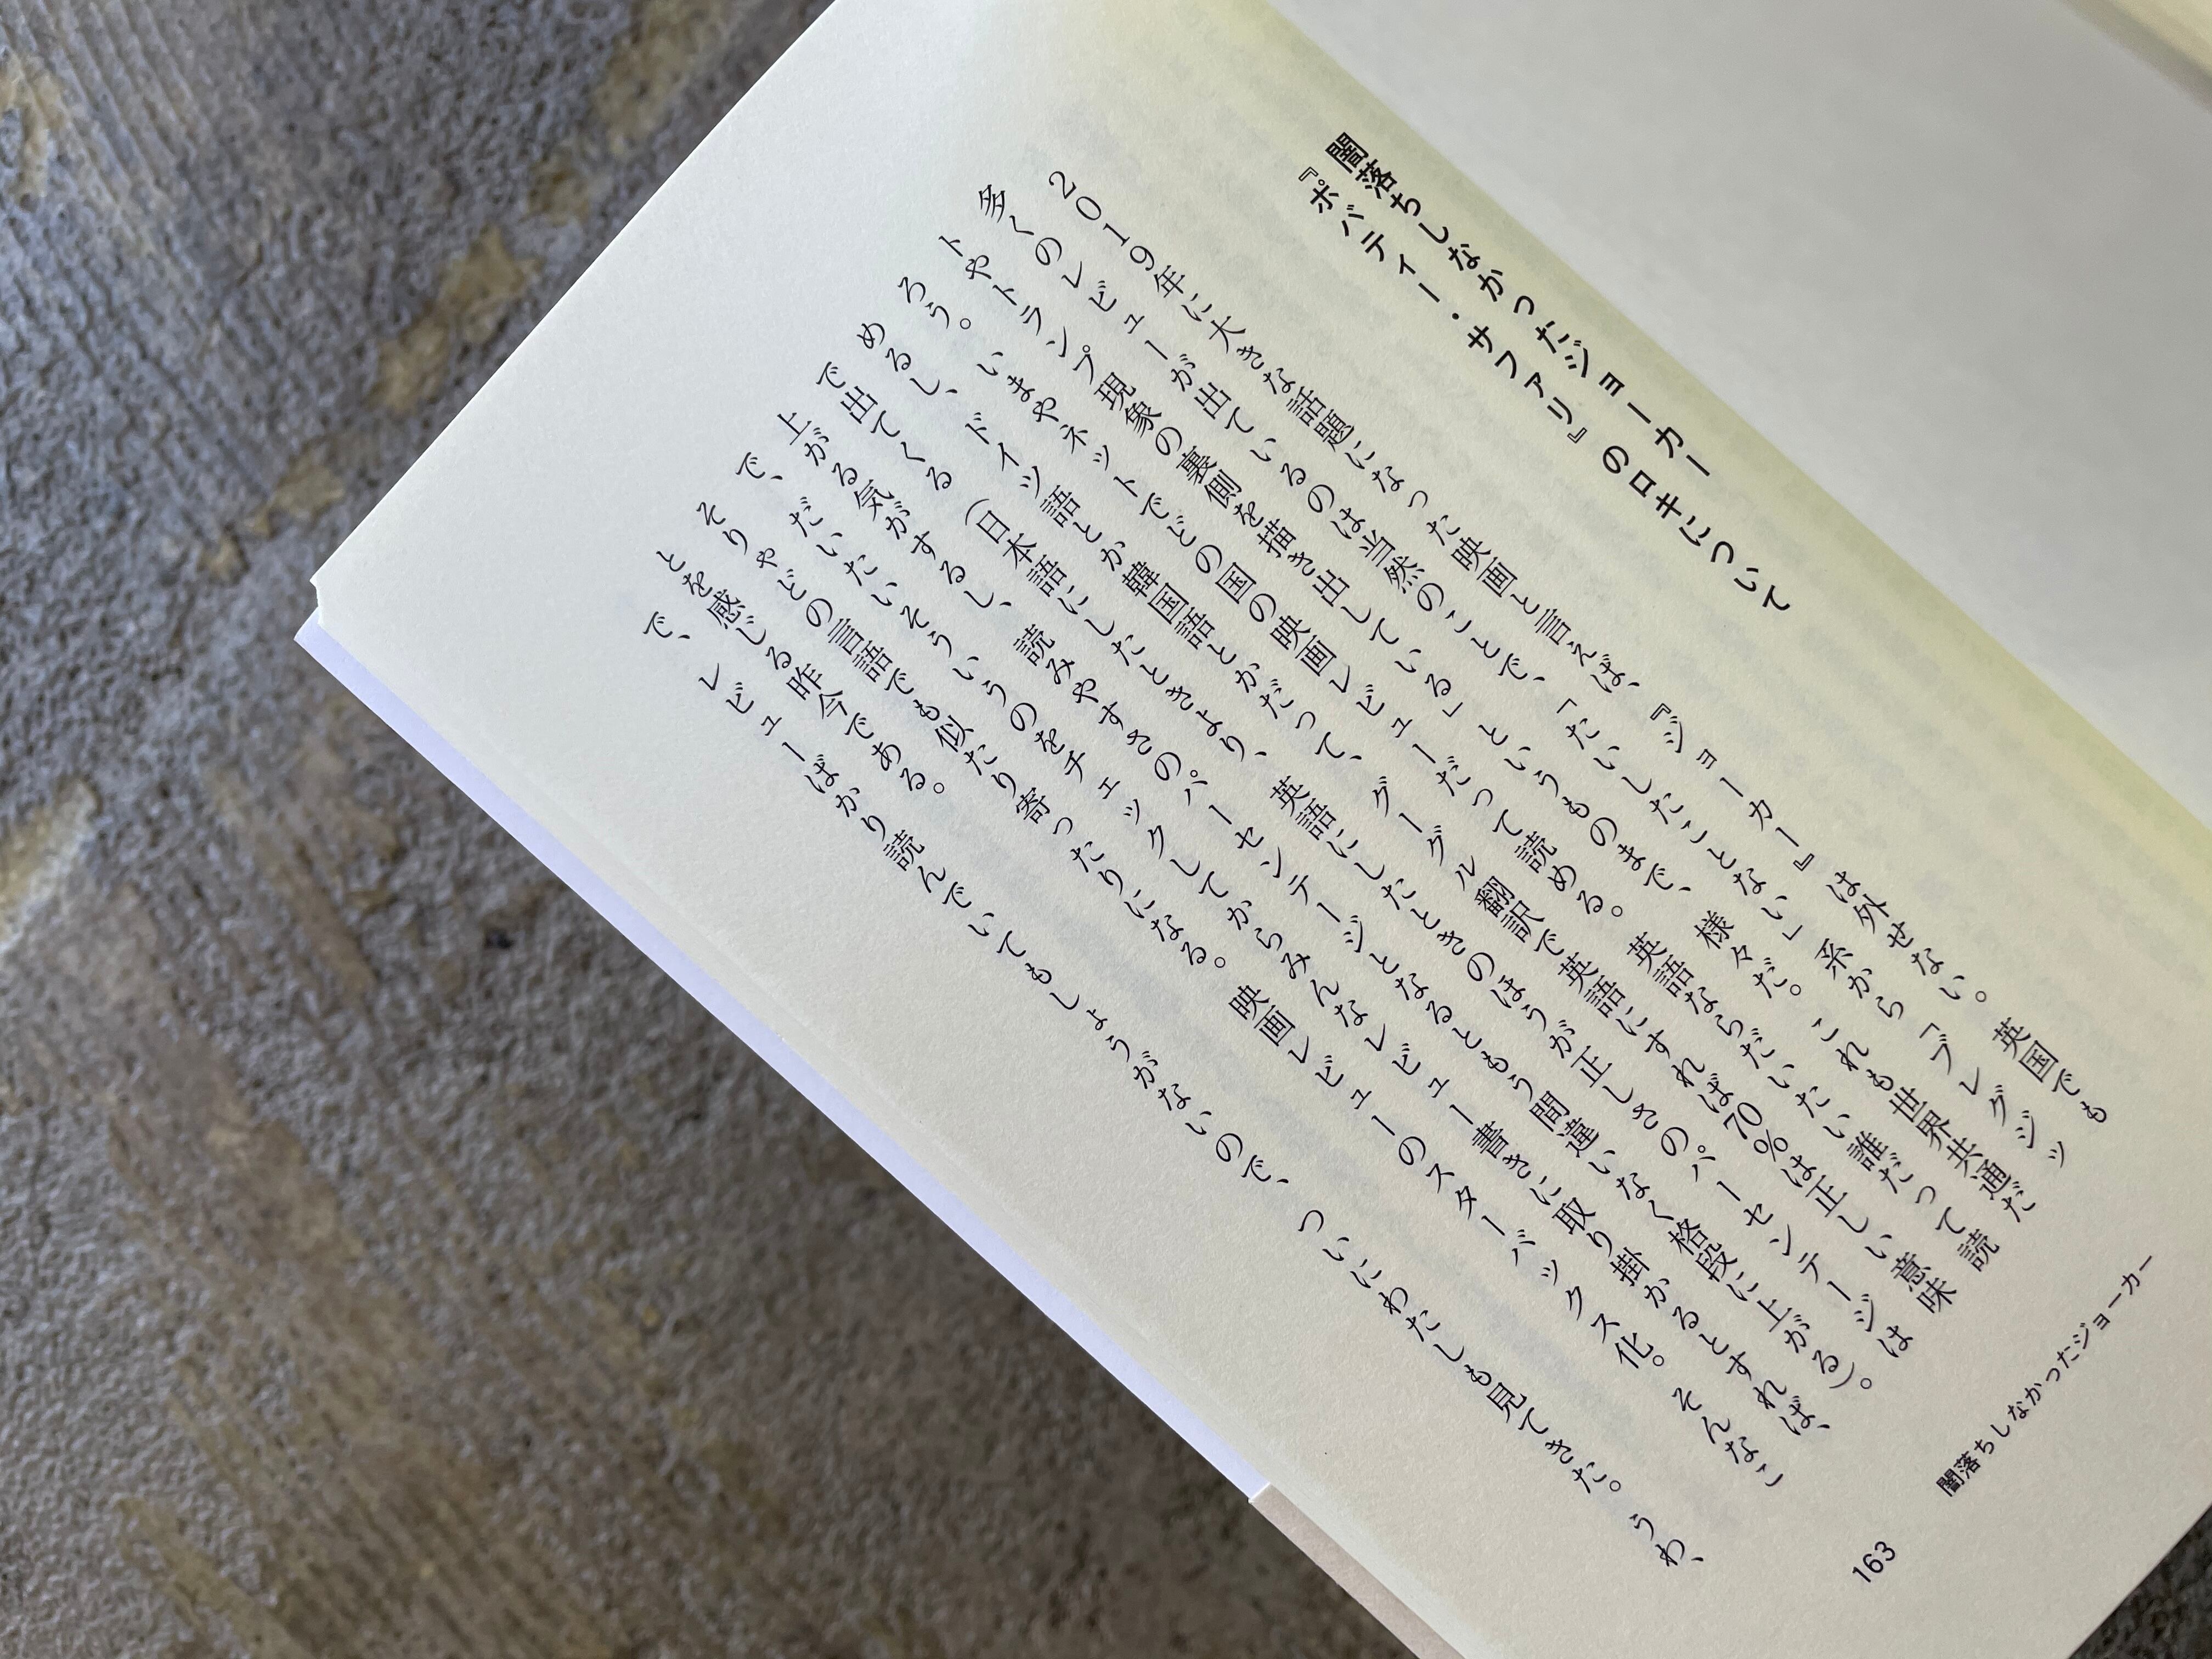 闇落ちしなかったジョーカー
『ポバティー・サファリ』のロキについて
2019年に大きな話題になった映画と言えば、『ジョーカー』は外せない。英国でも
多くのレビューが出ているのは当然のことで、「たいしたことない」系から「ブレグジッ
トやトランプ現象の裏側を描き出している」というものまで、様々だ。これも世界共通だ
ろう。いまやネットでどの国の映画レビューだって読める。英語ならだいたい誰だって読
めるし、ドイツ語とか韓国語とかだって、グーグル翻訳で英語にすれば70%は正しい意味
で出てくる（日本語にしたときより、英語にしたときのほうが正しさのパーセンテージは
上がる気がするし、読みやすさのパーセンテージとなるともう間違いなく格段に上がる）。
で、だいたいそういうのをチェックしてからみんなレビュー書きに取り掛かるとすれば、
そりゃどの言語でも似たり寄ったりになる。映画レビューのスターバックス化。そんなこ
とを感じる昨今である。
で、レビューばかり読んでいてもしょうがないので、ついにわたしも見てきた。うわ、
闇落ちしなかったジョーカー
163